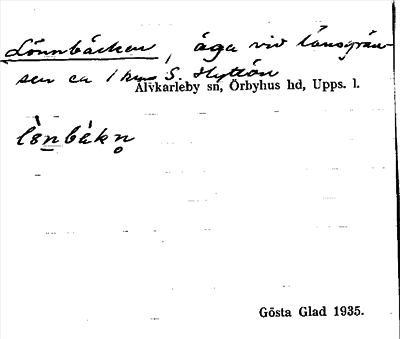 Lönnbäcken, äga vid länsgrän-
sen ca 1 km S. Hyttön
Älvkarleby sn, Örbyhus hd, Upps. l.
Gösta Glad 1935.